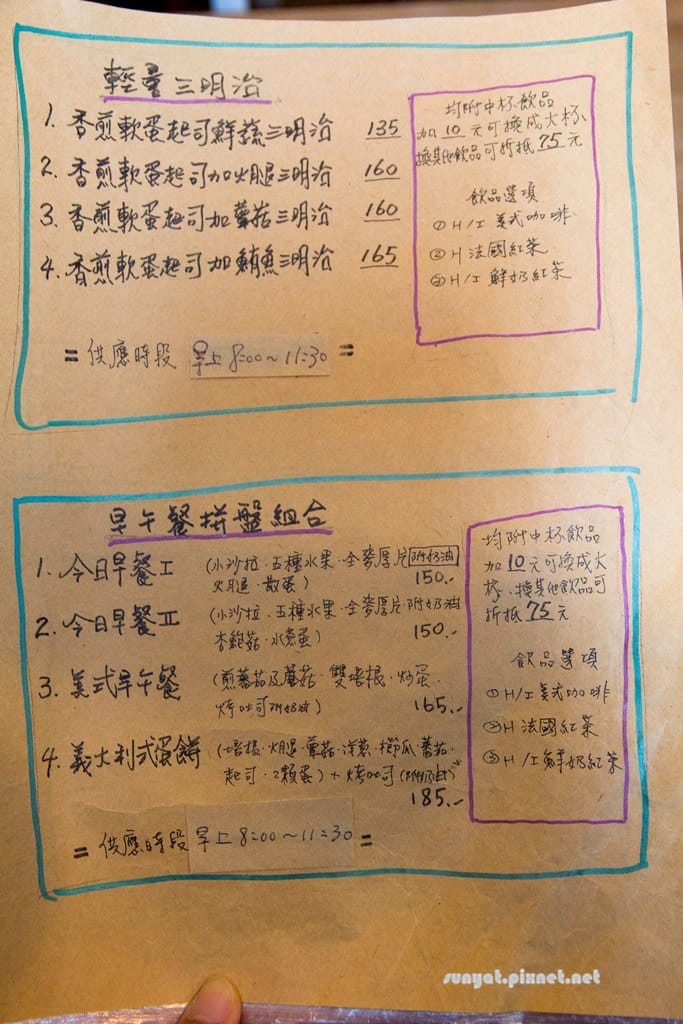 輕量三明治
1. 香煎軟蛋起司鮮蔬三明治 135
2. 香煎軟蛋起司加火腿三明治 160
3. 香煎軟蛋起司加蘑菇三明治 160
4. 香煎軟蛋起司加鮪魚三明治 165
= 供應時段 早上 8:00~11:30 =
均附中杯飲品
加 10 元可換成大杯
換其他飲品可折抵 75 元
飲品選項
① H/I 美式咖啡
② H 法國紅茶
③ H/I 鮮奶紅茶
早午餐拼盤組合
1. 今日早餐 I (小沙拉.五種水果.全麥厚片附奶油
火腿.散蛋) 150.-
2. 今日早餐 II (小沙拉.五種水果.全麥厚片.附奶油
杏鮑菇.水煮蛋) 150.-
3. 美式早午餐 (煎蕃茄及蘑菇.雙培根.炒蛋.
烤吐司附奶油) 165.-
4. 義大利式蛋餅 (培根.火腿.蘑菇.洋蔥.櫛瓜.蕃茄.
起司.2顆蛋) + 烤吐司(附奶油)
185.-
= 供應時段 早上 8:00~11:30 =
均附中杯飲品
加 10 元可換成大
杯.換其他飲品可
折抵 75 元
飲品選項
① H/I 美式咖啡
② H 法國紅茶
③ H/I 鮮奶紅茶
sunyat.pixnet.net